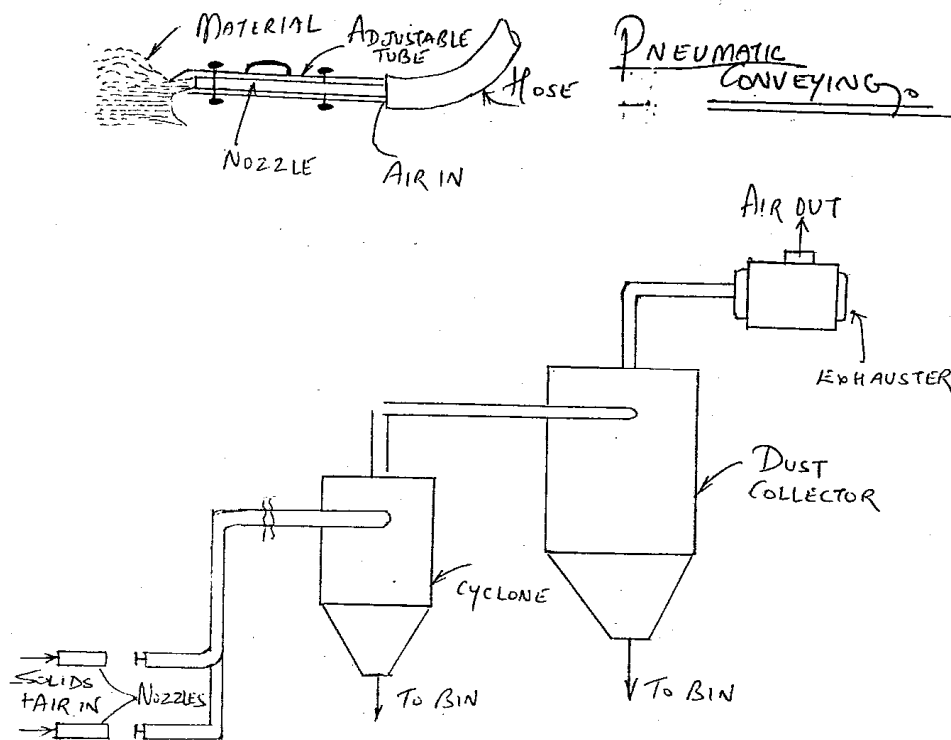 MATERIAL
ADJUSTABLE
TUBE
HOSE
NOZZLE
AIR IN
PNEUMATIC
CONVEYING
AIR OUT
EXHAUSTER
DUST
COLLECTOR
CYCLONE
SOLIDS
+AIR IN
NOZZLES
TO BIN
TO BIN